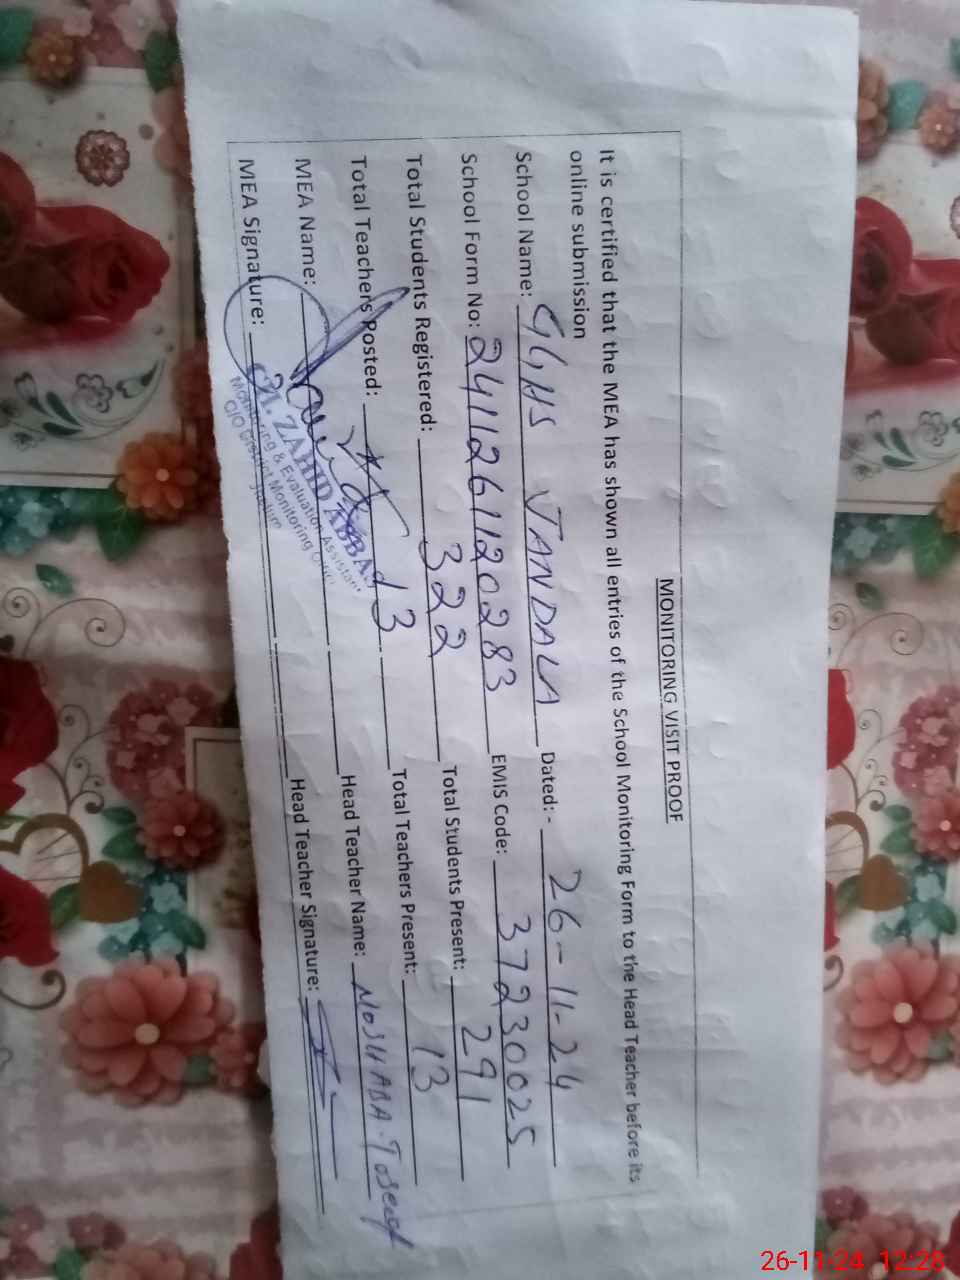 MONITORING VISIT PROOF
It is certified that the MEA has shown all entries of the School Monitoring Form to the Head Teacher before its
online submission
School Name: GGHS JANDALA Dated:- 26-11-24
School Form No: 2411261120283 EMIS Code: 37230025
Total Students Registered: 322 Total Students Present: 291
Total Teachers Posted: 13 Total Teachers Present: 13
MEA Name: Head Teacher Name: NOSHABA
MEA Signature: Head Teacher Signature:
M. ZAHID ABBAS
Monitoring & Evaluation Assistant
O/O District Monitoring
26-11-24 12:28